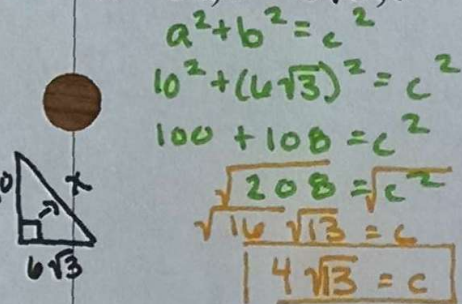 a²+b²=c²
10²+(6√3)²=c²
100+108=c²
√208=√c²
√16 √13=c
4√13=c
x
6√3